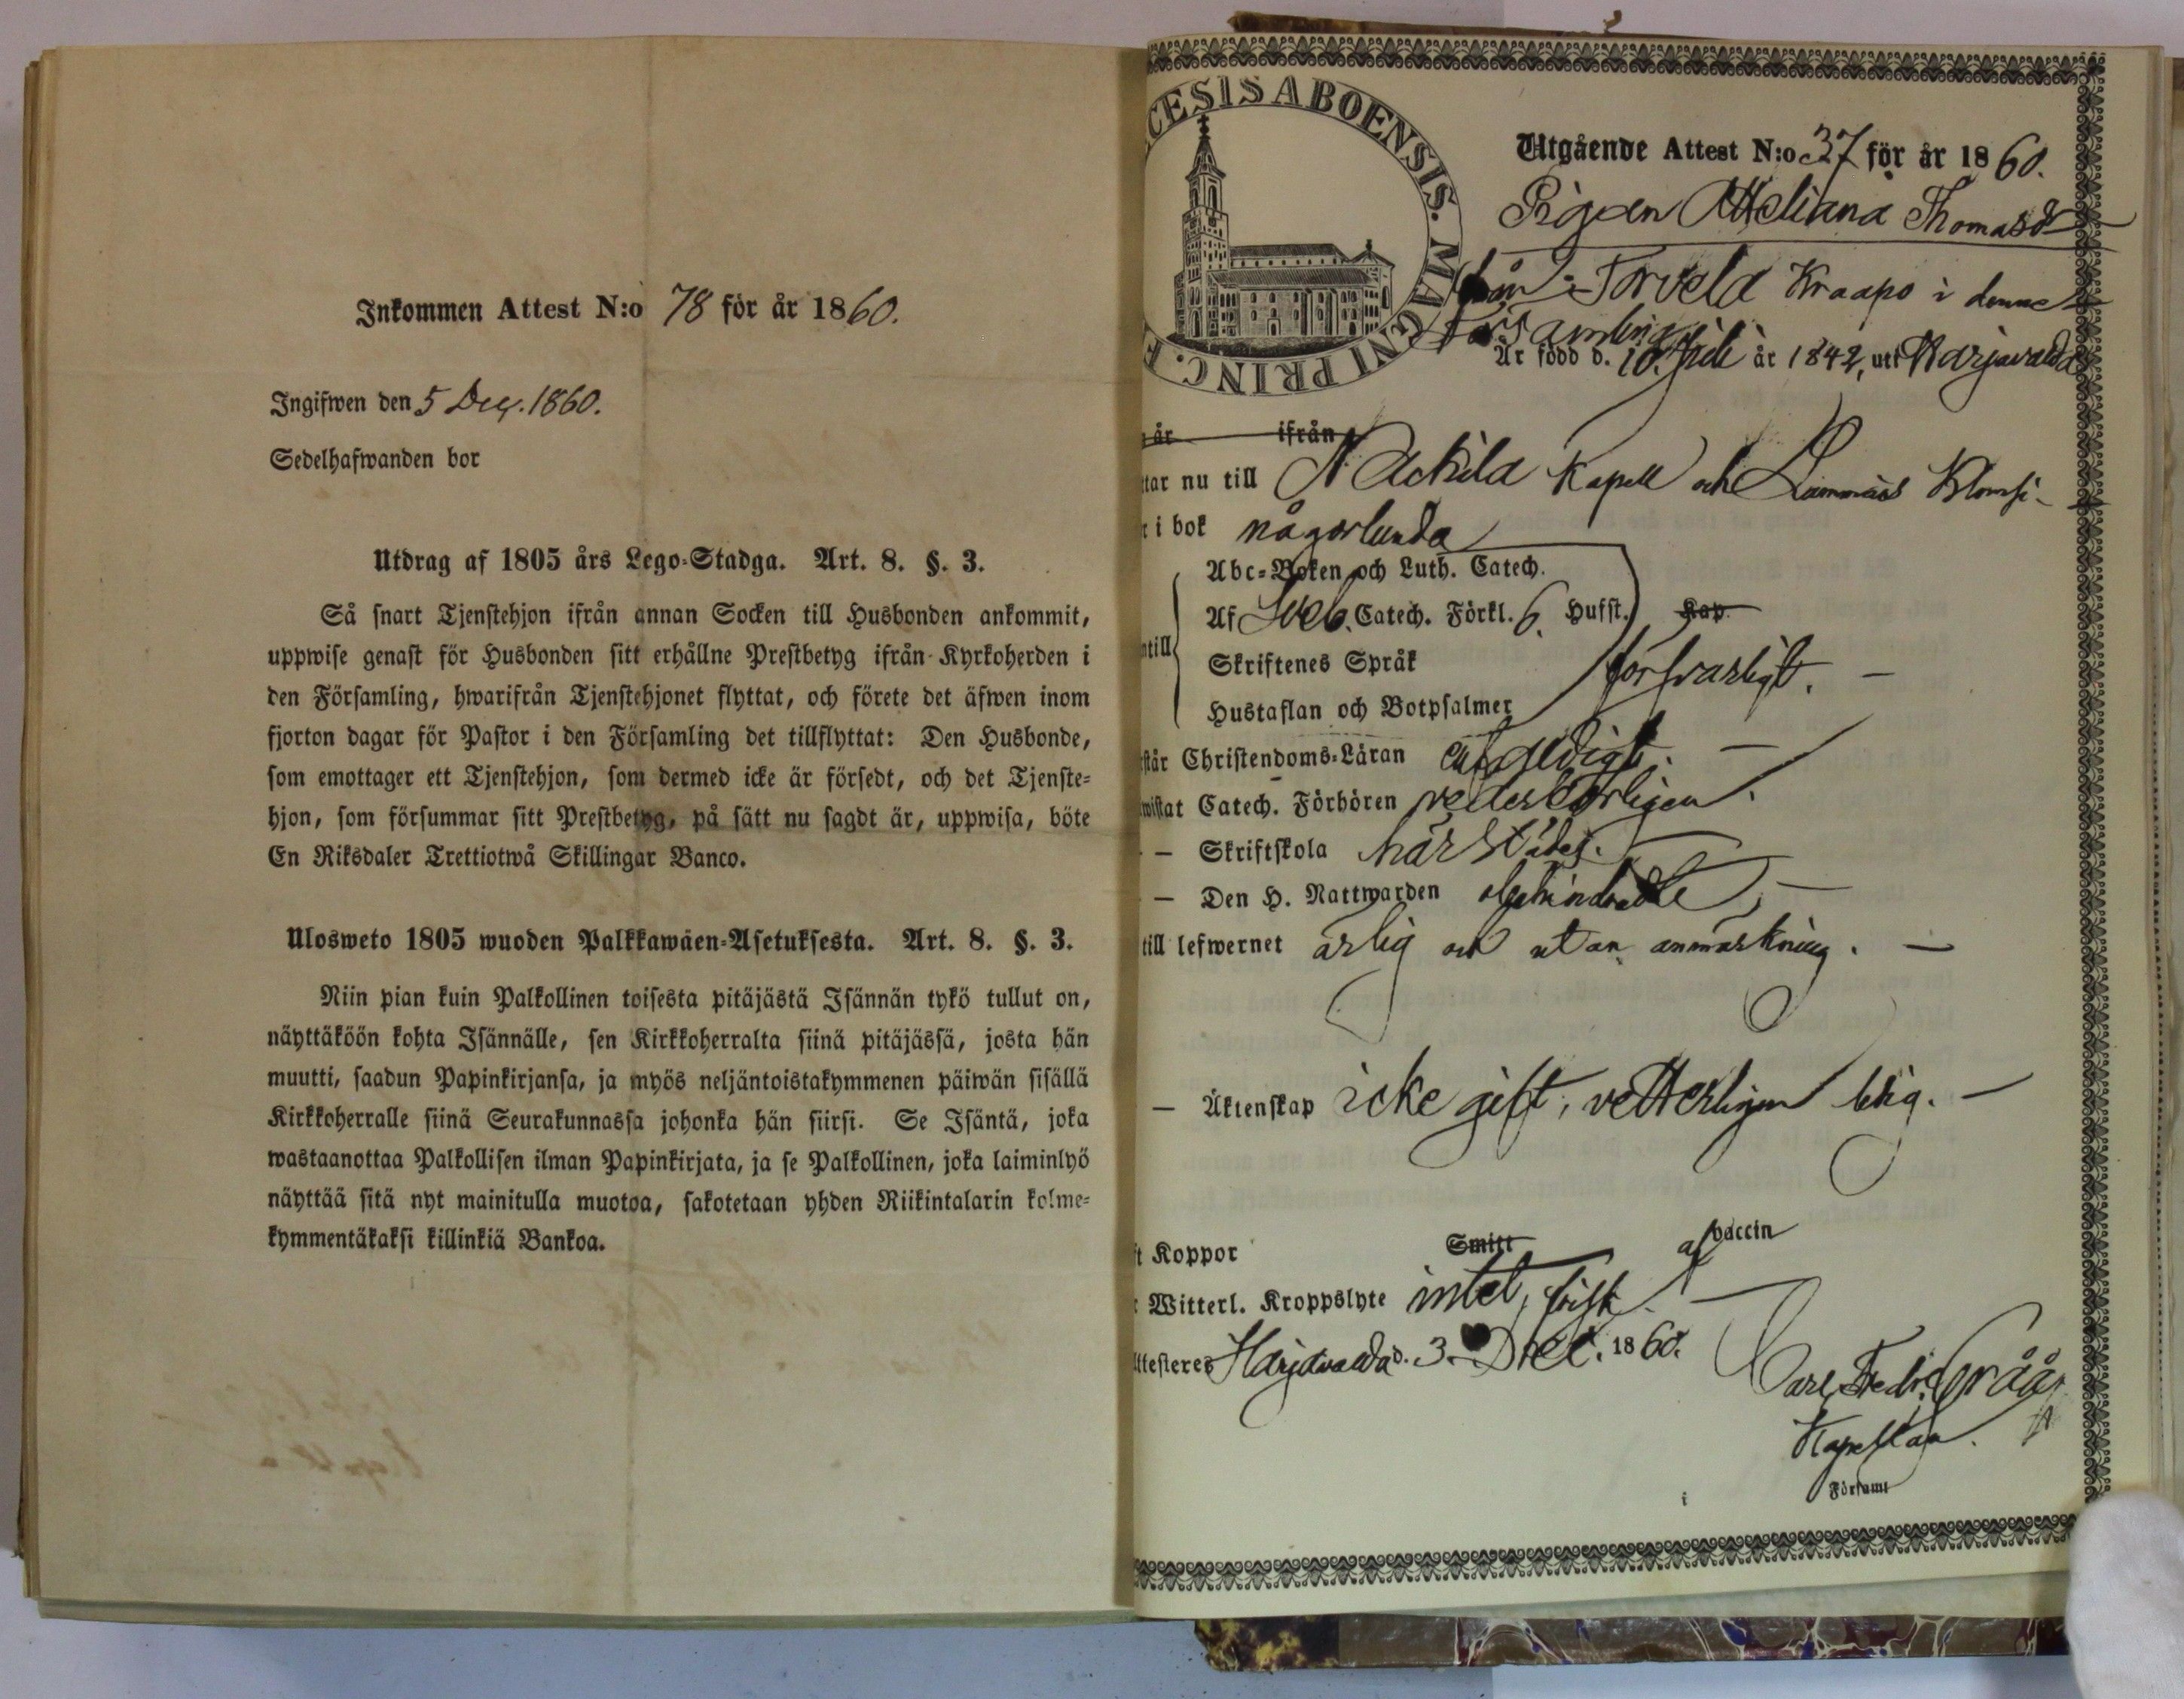 Inkommen Attest N:o 78 för år 1860.
Ingifwen den 5 Dec. 1860.
Sedelhafwanden bor
Utdrag af 1805 års Lego-Stadga. Art. 8. §. 3.
Så snart Tjenstehjon ifrån annan Socken till Husbonden ankommit,
uppwise genast för Husbonden sitt erhållne Prestbetyg ifrån Kyrkoherden i
den Församling, hwarifrån Tjenstehjonet flyttat, och förete det äfwen inom
fjorton dagar för Pastor i den Församling det tillflyttat: Den Husbonde,
som emottager ett Tjenstehjon, som dermed icke är försedt, och det Tjenste-
hjon, som försummar sitt Prestbetyg, på sätt nu sagdt är, uppwisa, böte
En Riksdaler Trettiotwå Skillingar Banco.
Ulosweto 1805 wuoden Palkkawäen-Asetuksesta. Art. 8. §. 3.
Niin pian kuin Palkollinen toisesta pitäjästä Isännän tykö tullut on,
näyttäköön kohta Isännälle, sen Kirkkoherralta siinä pitäjässä, josta hän
muutti, saadun Papinkirjansa, ja myös neljäntoistakymmenen päiwän sisällä
Kirkkoherralle siinä Seurakunnassa johonka hän siirsi. Se Isäntä, joka
wastaanottaa Palkollisen ilman Papinkirjata, ja se Palkollinen, joka laiminlyö
näyttää sitä nyt mainitulla muotoa, sakotetaan yhden Riikintalarin kolme-
kymmentäkaksi killinkiä Bankoa.
CESIS ABOENSIS. MAGNI PRINC. F
Utgående Attest N:o 37 för år 1860.
Pigan Thomasdr
från Torvela Kraapo i denne
Församling
Är född d. 10. år 1842, uti Harjavalda
år ifrån
tar nu till Nackila Kapell och
i bok någorlunda
Abc-Boken och Luth. Catech.
Af Sveb. Catech. Förkl. 6. Hufst. Kap.
till
Skriftenes Språk försvarligt. —
Hustaflan och Botpsalmer
står Christendoms-Läran enfaldigt. —
wistat Catech. Förhören vederbörligen.
— Skriftskola härstädes.
— Den H. Nattwarden obehindrad —
till lefwernet ärlig och utan anmärkning. —
— Äktenskap icke gift, vetterligen ledig. —
t Koppor Smitt af vaccin
Witterl. Kroppslyte intet, frisk. —
Attesteres Harjavalda d. 3. Dec. 1860.
Carl Fredr. Gråå
Kapellan.
i Församl